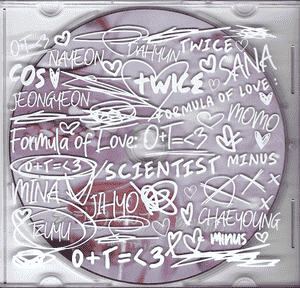 O+T=<3 NAYEON DAHYUN TWICE
COS SANA
JEONGYEON twice
FORMULA OF LOVE:
MOMO
Formula of Love: O+T=<3
O+T=<3 SCIENTIST MINUS
MINA JIHYO
CHAEYOUNG
TZUYU minus
O+T=<3